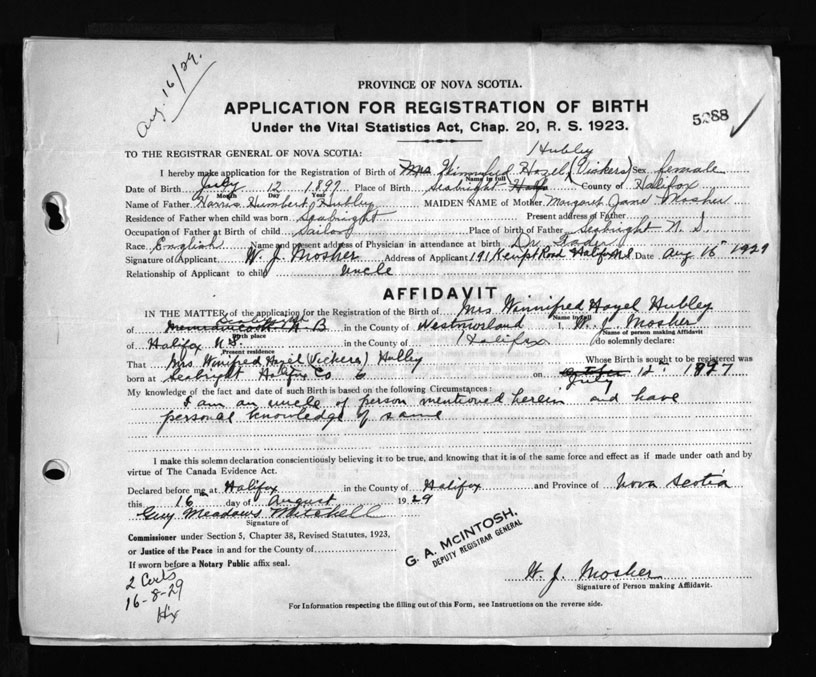 Aug. 16/29.
PROVINCE OF NOVA SCOTIA.
APPLICATION FOR REGISTRATION OF BIRTH
5288
Under the Vital Statistics Act, Chap. 20, R. S. 1923.
Hubley
TO THE REGISTRAR GENERAL OF NOVA SCOTIA:
I hereby make application for the Registration of Birth of Mrs Winnifred Hazel (Vickers) Sex female
Name in full
Date of Birth July 12 1897 Place of Birth Seabright County of Halifax
Month Day Year
Name of Father Harris Humbert Hubley MAIDEN NAME of Mother Margaret Jane Mosher
Residence of Father when child was born Seabright Present address of Father
Occupation of Father at Birth of child Sailor Place of birth of Father Seabright N. S.
Race English Name and present address of Physician in attendance at birth Dr.
Signature of Applicant W. J. Mosher Address of Applicant 191 Kempt Road Halifax N.S. Date Aug 15 1929
Relationship of Applicant to child uncle
AFFIDAVIT
IN THE MATTER of the application for the Registration of the Birth of Mrs Winnifred Hazel Hubley
Name in full
Seabright
of N. B in the County of Westmorland I, W. J. Mosher
Birth place
Name of person making Affidavit
of Halifax N.S. in the County of Halifax do solemnly declare:
Present residence
That Mrs. Winifred Hazel (Vickers) Whose Birth is sought to be registered was
born at Seabright Halifax Co on October 12th 1897
July
My knowledge of the fact and date of such Birth is based on the following Circumstances:
I am an uncle of person mentioned herein and have
personal knowledge of same
I make this solemn declaration conscientiously believing it to be true, and knowing that it is of the same force and effect as if made under oath and by
virtue of The Canada Evidence Act.
Declared before me at Halifax in the County of Halifax and Province of Nova Scotia
this 16th day of August 1929
Guy Meadows Mitchell
Signature of
Commissioner under Section 5, Chapter 38, Revised Statutes, 1923,
or Justice of the Peace in and for the County of
If sworn before a Notary Public affix seal.
G. A. McINTOSH.
DEPUTY REGISTRAR GENERAL
2 Certs
16-8-29
Hx
W. J. Mosher
Signature of Person making Affidavit.
For Information respecting the filling out of this Form, see Instructions on the reverse side.